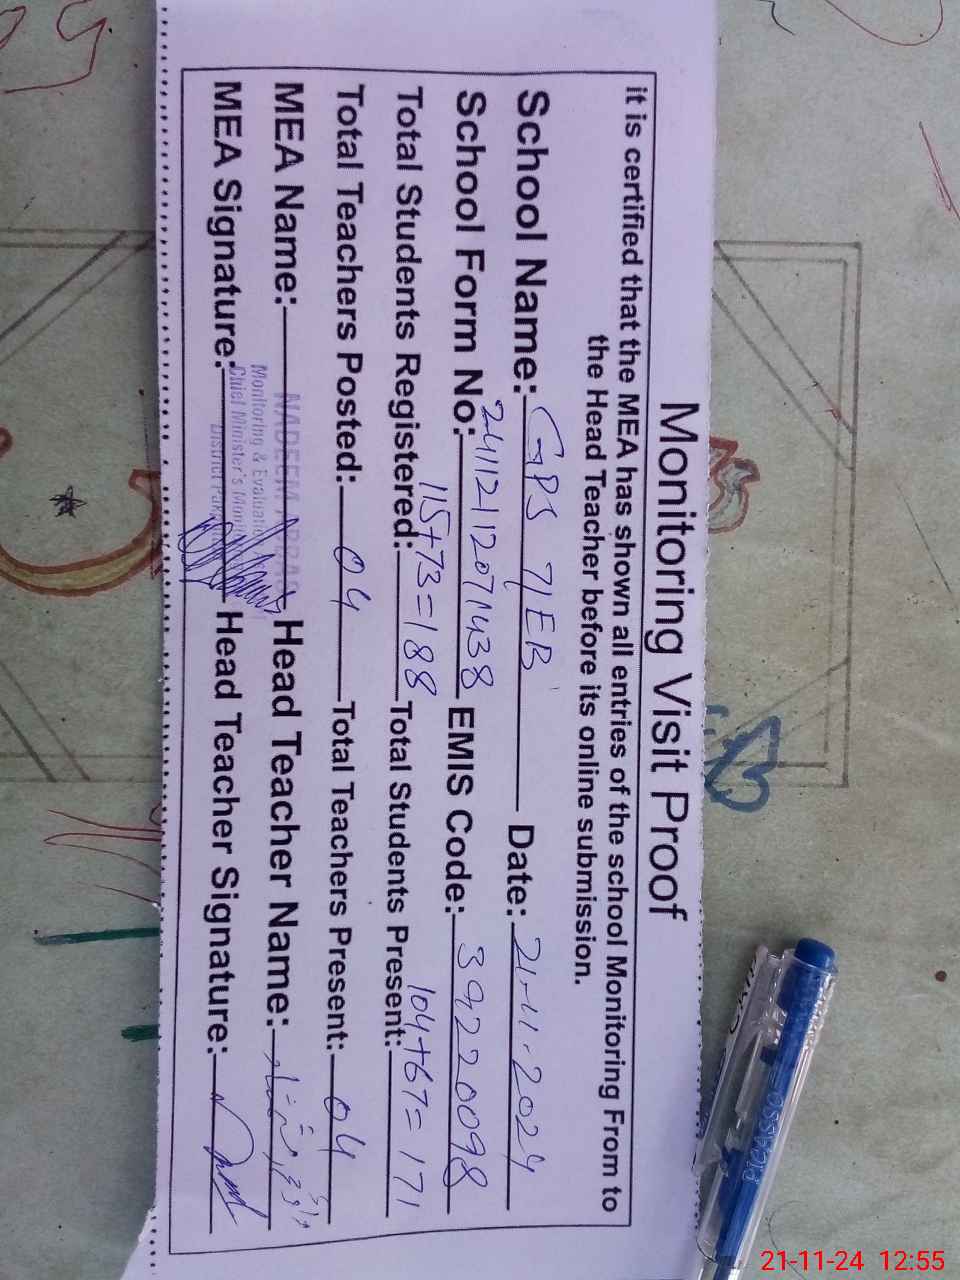 Monitoring Visit Proof
it is certified that the MEA has shown all entries of the school Monitoring From to
the Head Teacher before its online submission.
School Name: GPS 7/EB Date: 21-11-2024
School Form No: 24112112071438 EMIS Code: 39220098
Total Students Registered: 115+73=188 Total Students Present: 104+67=171
Total Teachers Posted: 04 Total Teachers Present: 04
MEA Name: NADEEM ABBAS Head Teacher Name:
Monitoring & Evaluation
Chief Minister's
MEA Signature: Head Teacher Signature:
District
PICASSO
21-11-24 12:55